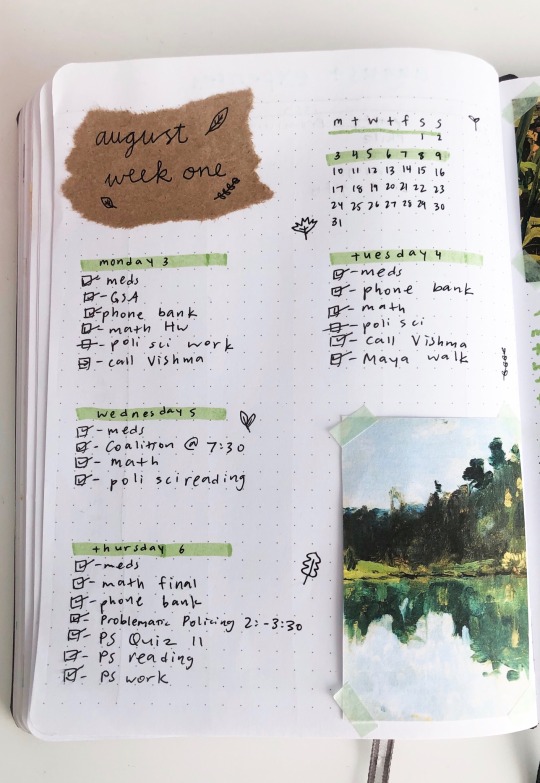 august
week one
m t w t f s s
1 2
3 4 5 6 7 8 9
10 11 12 13 14 15 16
17 18 19 20 21 22 23
24 25 26 27 28 29 30
31
monday 3
- meds
- GSA
phone bank
- math HW
- poli sci work
- call Vishma
tuesday 4
- meds
- phone bank
- math
- poli sci
- call Vishma
- Maya walk
wednesday 5
- meds
- Coalition @ 7:30
- math
- poli sci reading
thursday 6
- meds
- math final
- phone bank
- Problematic Policing 2:-3:30
- PS Quiz 11
- PS reading
- PS work